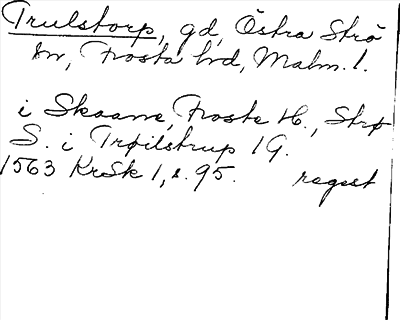 Trulstorp, gd, Östra Strö
sn, Frosta hd, Malm. l.
i Skaane, Froste H., Strø
S. i Trøilstrup 1 G.
1563 KrSk 1, s. 95. regest